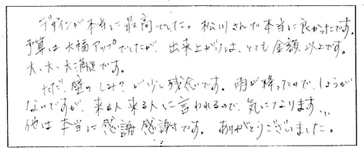 デザインが本当に最高でした。松川さんで本当に良かったです。
予算は大幅アップでしたが、出来上がりは、とても金額以上です。
大、大、大満足です。
ただ、壁のしみ?が少し残念です。雨が降ったので、しょうが
ないですが、来る人来る人に言われるので、気になります…
他は本当に感謝感謝です。ありがとうございました。